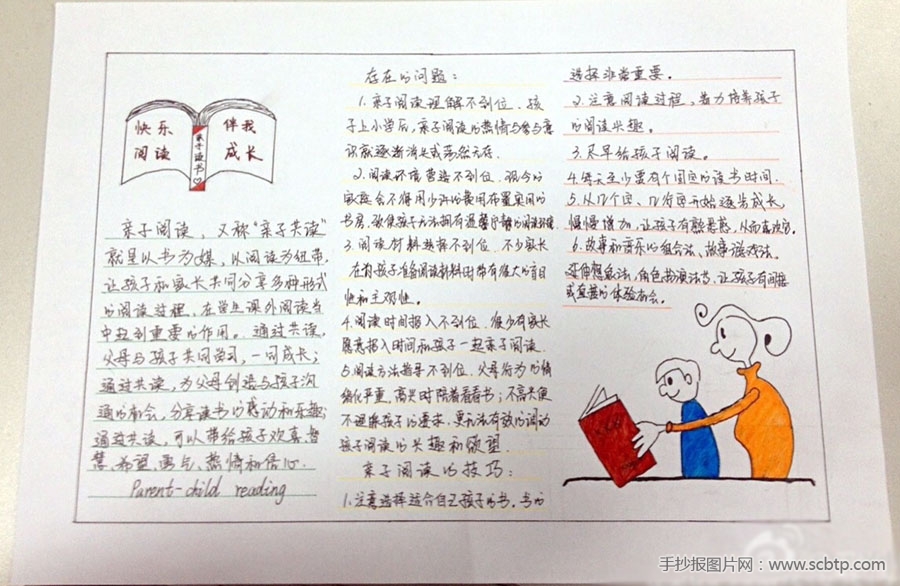 快乐
阅读
亲子读书
伴我
成长
亲子阅读，又称“亲子共读”
就是以书为媒，以阅读为纽带，
让孩子和家长共同分享多种形式
的阅读过程，在学生课外阅读当
中起到重要的作用。通过共读，
父母与孩子共同学习，一同成长；
通过共读，为父母创造与孩子沟
通的机会，分享读书的感动和乐趣；
通过共读，可以带给孩子欢喜、智
慧、希望、勇气、热情和信心。
Parent-child reading
存在的问题：
1.亲子阅读理解不到位，孩
子上小学后，亲子阅读的热情与参与意
识就逐渐消失或荡然无存。
2.阅读环境营造不到位，现今的
家庭会不得用少许的费用布置实用的
书房，致使孩子无法拥有温馨宁静的阅读环境
3.阅读材料选择不到位，不少家长
在为孩子准备阅读材料时带有很大的盲目
性和主观性。
4.阅读时间投入不到位，很少有家长
愿意投入时间和孩子一起亲子阅读
5.阅读方法指导不到位，父母行为的情
绪化严重，高兴时陪着看看书；不高兴便
不理睬孩子的要求，更无法有效的调动
孩子阅读的兴趣和欲望
亲子阅读的技巧：
1.注意选择适合自己孩子的书。书的
选择非常重要。
2.注意阅读过程，着力培养孩子
的阅读兴趣。
3.尽早给孩子阅读。
4.每天至少要有个固定的读书时间.
5.从几个字、几句字开始逐步成长，
慢慢增加，让孩子有熟悉感，从而喜欢它.
6.故事和音乐的组合法、故事游戏法、
延伸想象法，角色扮演法等，让孩子有间接
或直接的体验机会。
手抄报图片网：www.scbtp.com